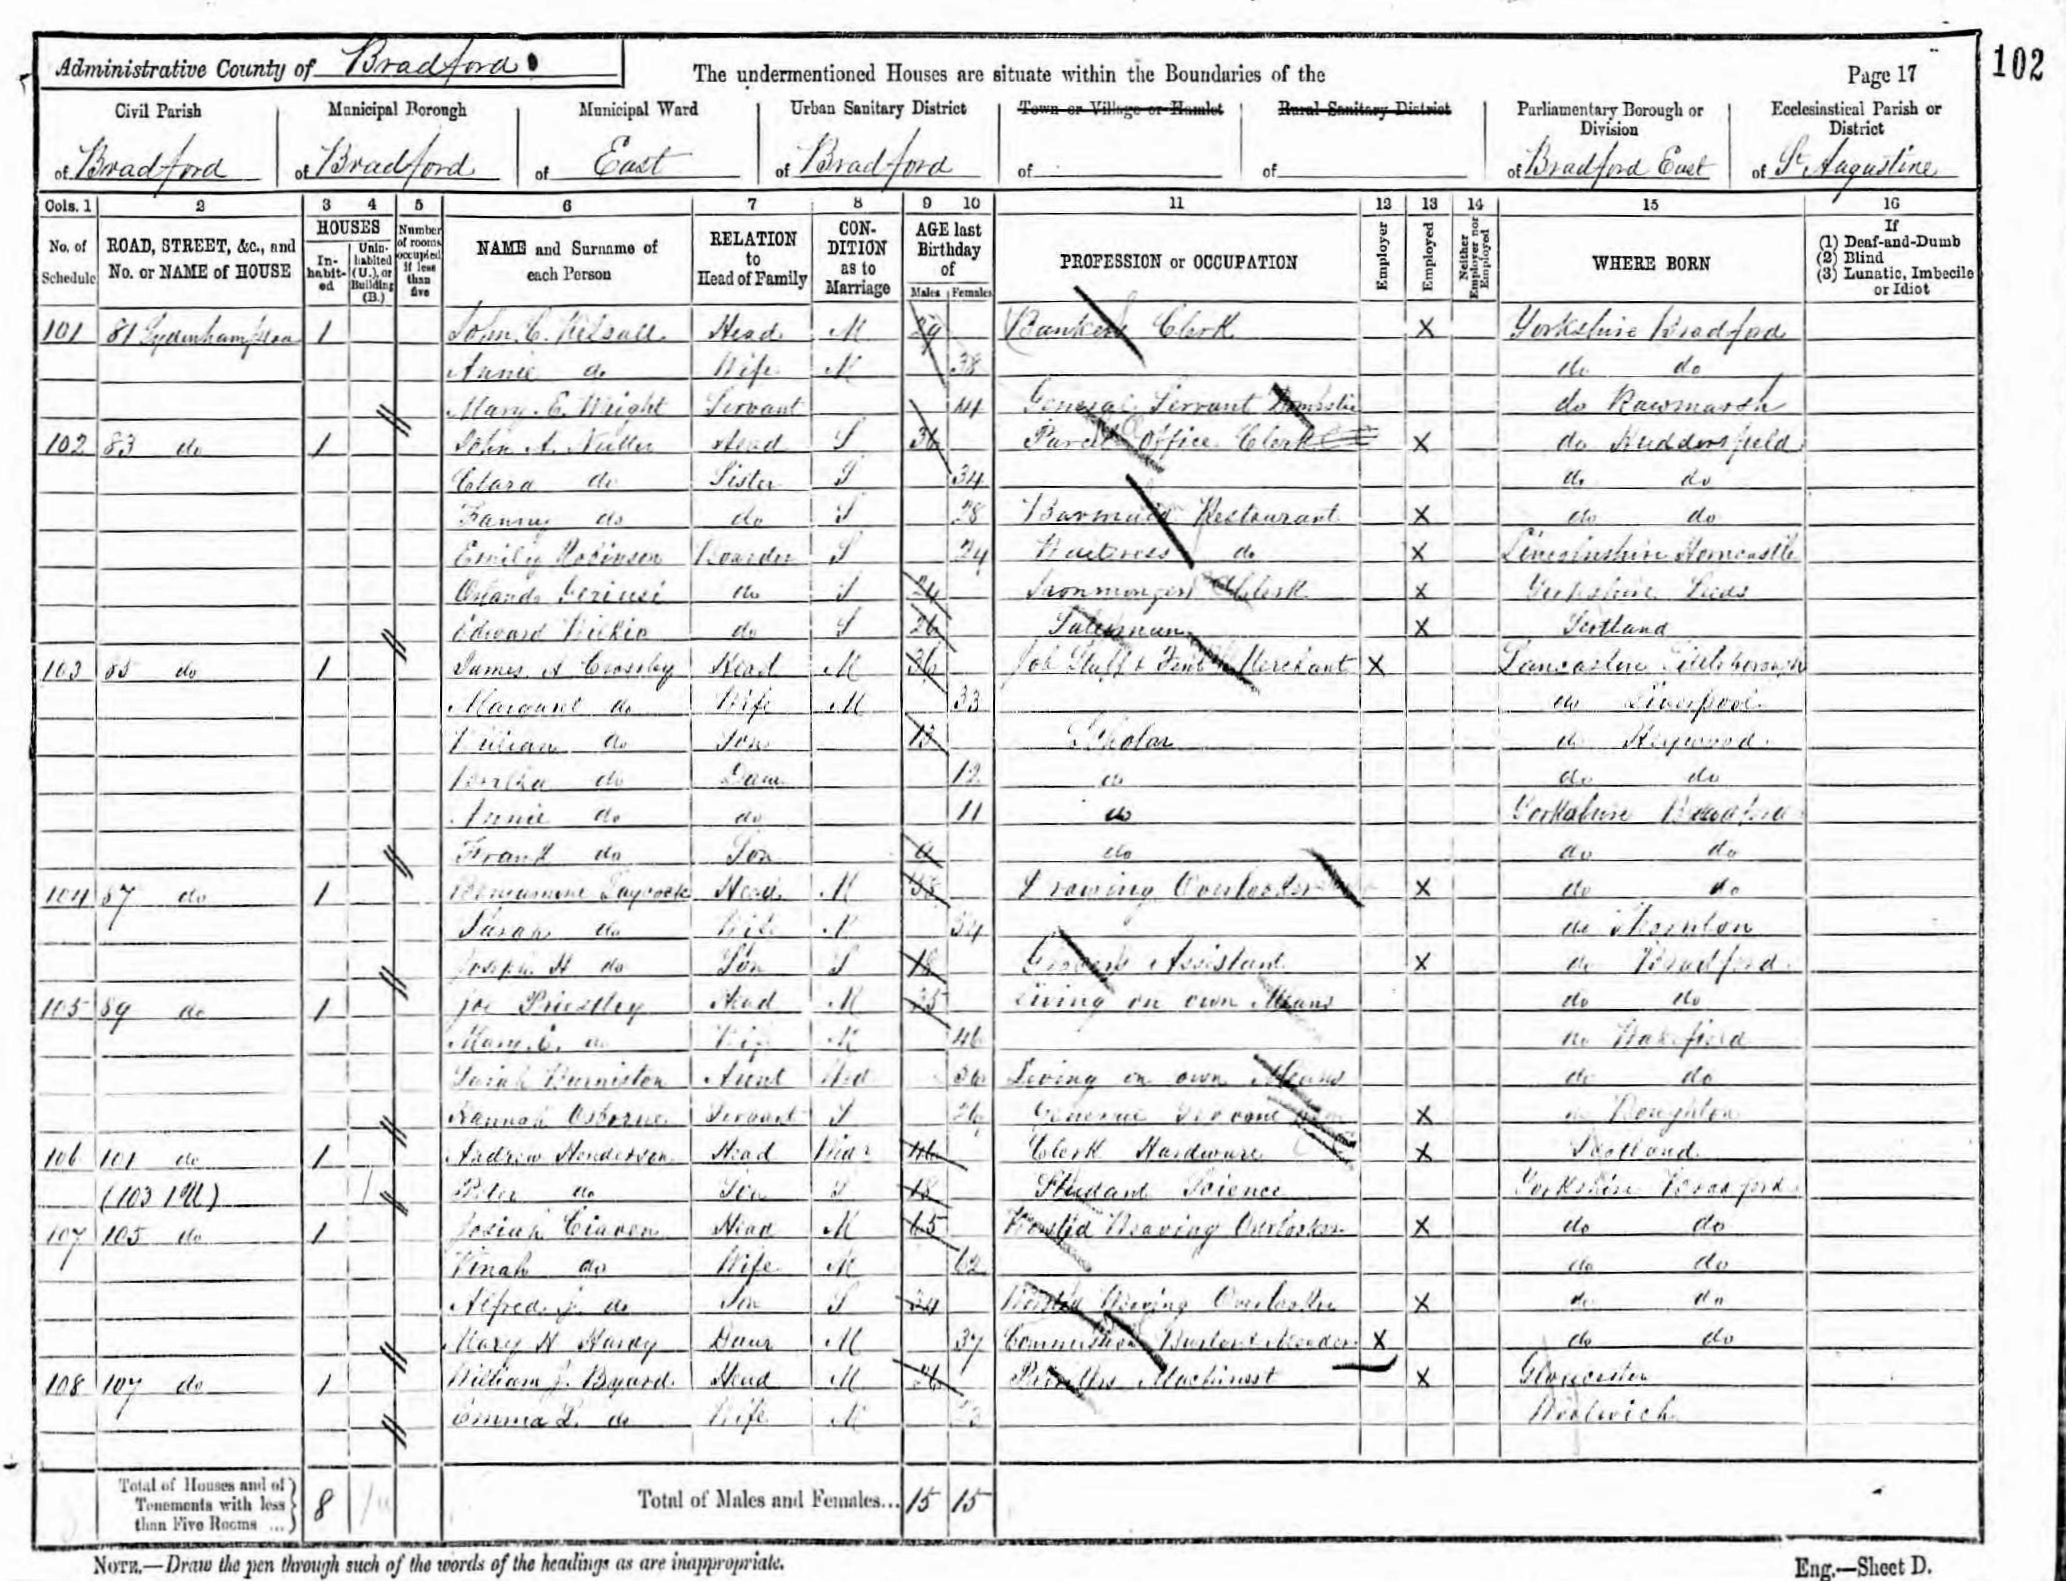 Administrative County of Bradford
The undermentioned Houses are situate within the Boundaries of the
Page 17
102
Civil Parish
Municipal Borough
Municipal Ward
Urban Sanitary District
Town or Village or Hamlet
Rural Sanitary District
Parliamentary Borough or Division
Ecclesiastical Parish or District
of Bradford
of Bradford
of East
of Bradford
of
of
of Bradford East
of St Augustine
Cols. 1 2 3 4 5 6 7 8 9 10 11 12 13 14 15 16
No. of Schedule
ROAD, STREET, &c., and No. or NAME of HOUSE
HOUSES
Inhabited
Uninhabited (U.), or Building (B.)
Number of rooms occupied if less than five
NAME and Surname of each Person
RELATION to Head of Family
CONDITION as to Marriage
AGE last Birthday of
Males Females
PROFESSION or OCCUPATION
Employer
Employed
Neither Employer nor Employed
WHERE BORN
If
(1) Deaf-and-Dumb
(2) Blind
(3) Lunatic, Imbecile or Idiot
101 81 1 John C. Head M 29 Bankers Clerk X Yorkshire Bradford
Annie do Wife M 38 do do
Mary E. Wright Servant General Servant Domestic do Rawmarsh
102 83 do 1 John A. Head S 36 Parcel Office Clerk X do Huddersfield
Clara do Sister S 34 do do
Fanny do do S 28 Barmaid Restaurant X do do
Emily Robinson Boarder S 24 Waitress do X Lincolnshire Horncastle
do S 24 Ironmongers Clerk X Yorkshire Leeds
Edward Wilkie do S 26 Salesman X Scotland
103 85 do 1 James A Crossley Head M 36 Job Stuff & Fent Merchant X Littleborough
Margaret do Wife M 33 do Liverpool
William do Son 13 Scholar do Heywood
do Daur 12 do do do
Annie do do 11 do Yorkshire Bradford
Frank do Son do do do
104 87 do 1 Laycock Head M Drawing Overlooker X do do
Sarah do Wife M 54 do Thornton
Joseph H do Son S 18 Grocers Assistant X do Bradford
105 89 do 1 Joe Priestley Head M Living on own Means do do
Mary E. do Wife M 46 do Wakefield
Sarah Burniston Aunt Wid Living on own Means do do
Hannah Osborne Servant S 26 General Servant X
106 101 do 1 Andrew Henderson Head Widr 46 Clerk Hardware X Scotland
(103 1 U) 1 Peter do Son S 18 Student Science Yorkshire Bradford
107 105 do 1 Josiah Craven Head M 65 Worsted Weaving Overlooker X do do
do Wife M 62 do do
Alfred J. do Son S 24 Worsted Weaving Overlooker X do do
Mary H Hardy Daur M 37 Commission Burler & Mender X do do
108 107 do 1 William J. Byard Head M 26 Machinist X Gloucester
Emma L. do Wife M Woolwich
Total of Houses and of Tenements with less than Five Rooms ...
8
Total of Males and Females... 15 15
NOTE.—Draw the pen through such of the words of the headings as are inappropriate.
Eng.—Sheet D.